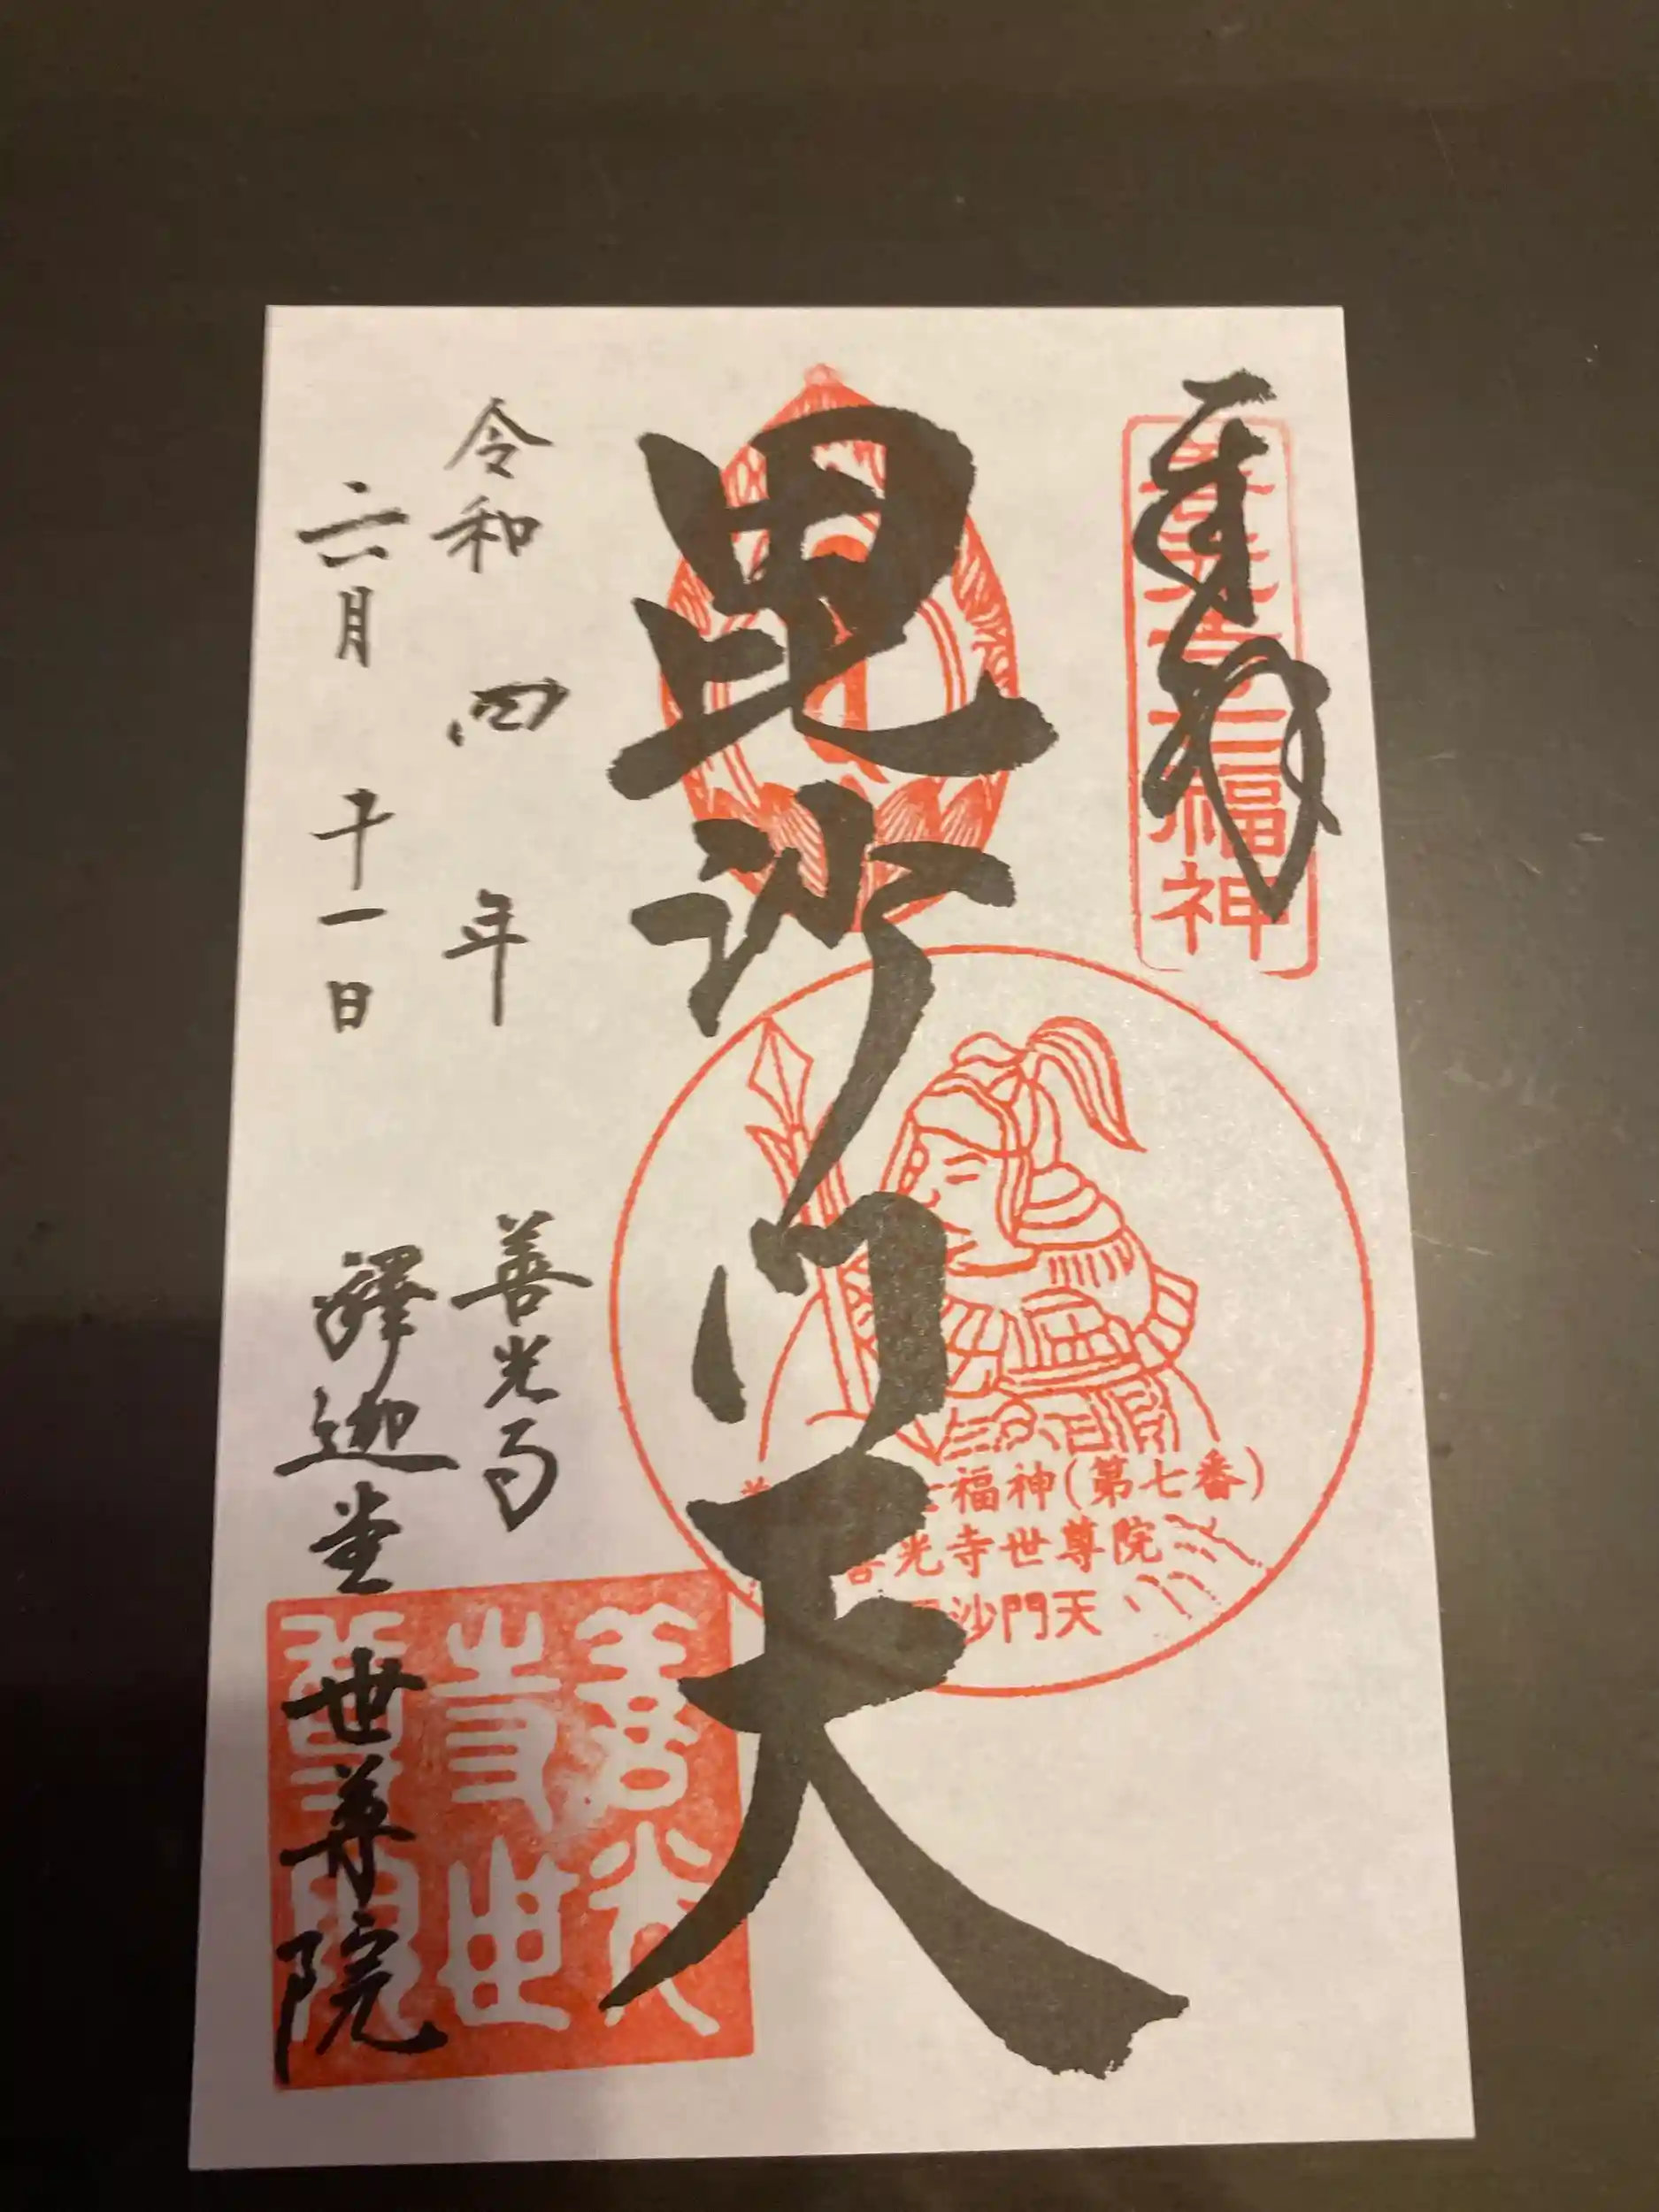 奉拝
福神
毘沙门天
福神(第七番)
光寺世尊院
沙門天
令和四年
六月十一日
善光寺
釋迦堂
世尊院
善光寺世尊院